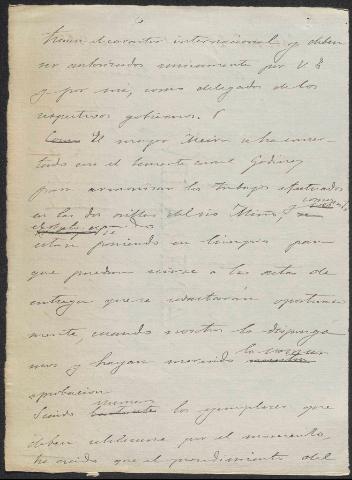 tienen el caracter internacional y deben
ser autorizados unicamente por V E
y por mi, como delegados de los
respectivos gobiernos.
Como El mayor Meira se ha concer-
tado con el teniente coronel Godinez
para armonizar los trabajos efectuados
en las dos orillas del rio Miño, y
estan poniendo en limpio para
que puedan unirse a las actas de
entrega que se redactarán oportuna-
mente, cuando nosotros lo disponga
mos y hayan merecido
aprobacion
Siendo los ejemplares que
deben celebrarse por el momento,
he creido que el procedimiento del